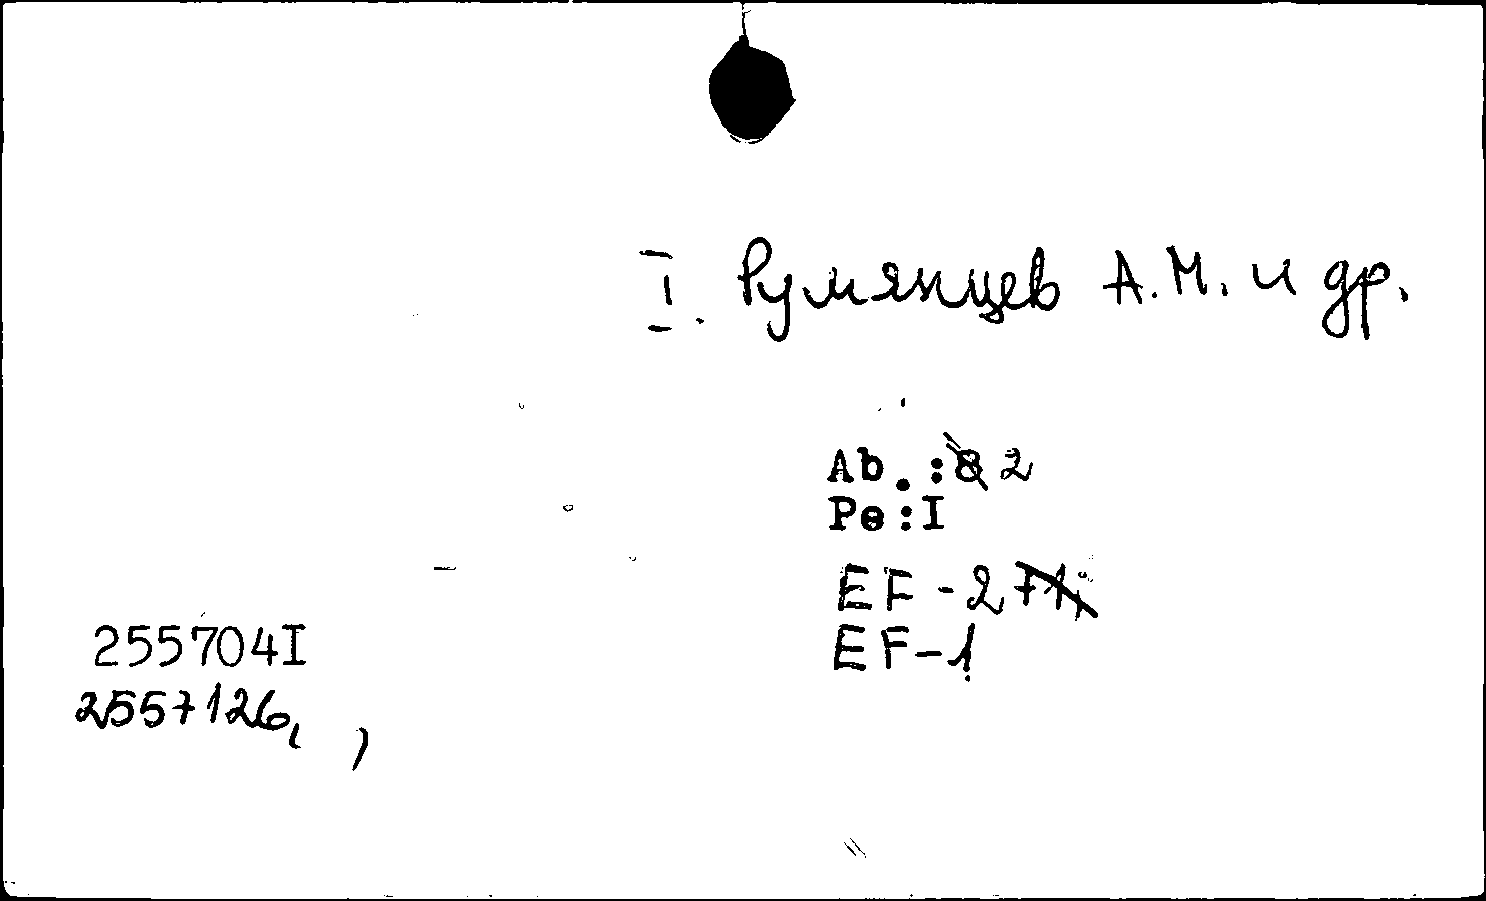 I. Румянцев А.М. и др.
Ab.:8 2
Pe:I
EF-271,
EF-1
255704I
2557126,